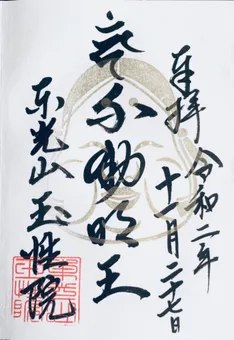 奉拝 令和二年
十一月二十七日
不動明王
東光山 玉性院